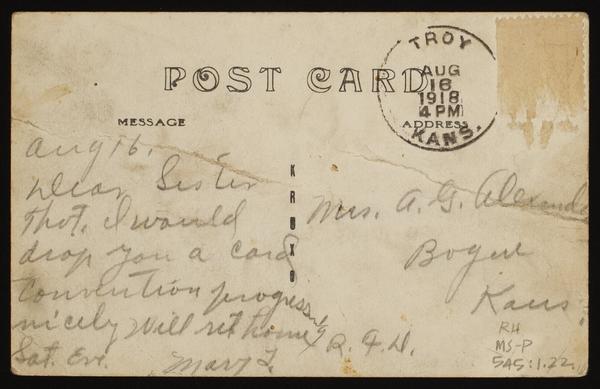 POST CARD
TROY
AUG
16
1918
4 PM
KANS.
MESSAGE
ADDRESS
Aug 16.
Dear Sister
Thot, I would
drop you a card
Convention progressing
nicely Will ret home
Sat. Eve. Mary L.
KRUXO
Mrs. A. G. Alexander
Bogue
Kans.
R. F. D.
RH
MS-P
545:1.22.